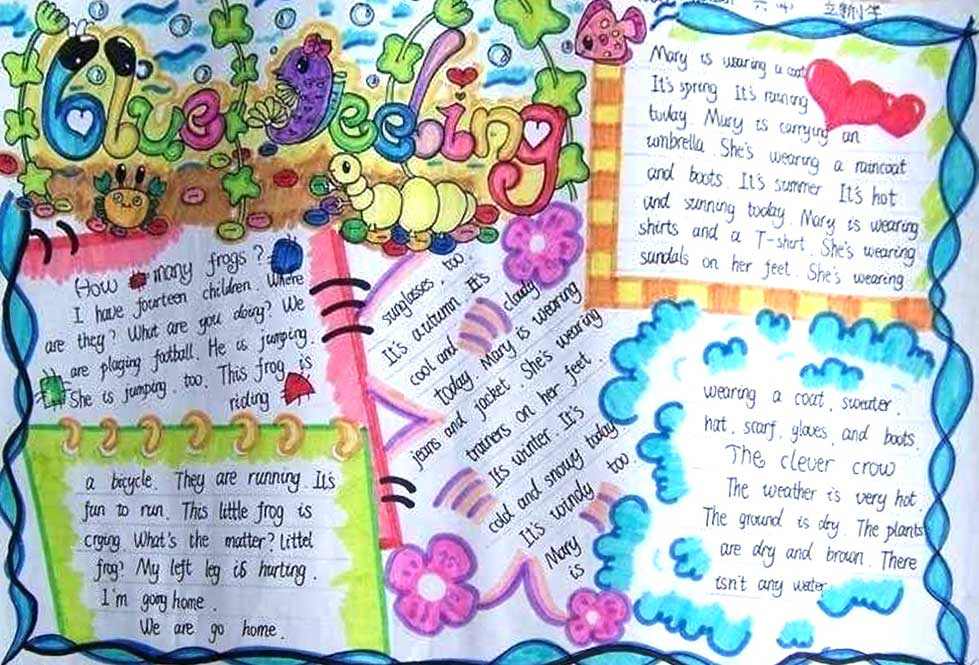 Blue Feeling
How many frogs?
I have fourteen children. Where
are they? What are you doing? We
are playing football. He is jumping.
She is jumping, too. This frog is
riding
a bicycle. They are running. It's
fun to run. This little frog is
crying. What's the matter? Littel
frog? My left leg is hurting.
I'm going home.
We are go home.
Mary is wearing a coat
It's spring It's raining
today. Mary is carrying an
umbrella. She's wearing a raincoat
and boots. It's summer It's hot
and sunning today. Mary is wearing
shirts and a T-shirt. She's wearing
sandals on her feet. She's wearing
sunglasses, too.
It's autumn. It's cloudy
cool and
today. Mary is wearing
jeans and jacket. She's wearing
trainers on her feet.
Its winter. It's
cold and snowy today.
It's windy too.
Mary
is
wearing a coat, sweater,
hat, scarf, gloves, and boots.
The clever crow
The weather is very hot.
The ground is dry. The plants
are dry and brown. There
isn't any water